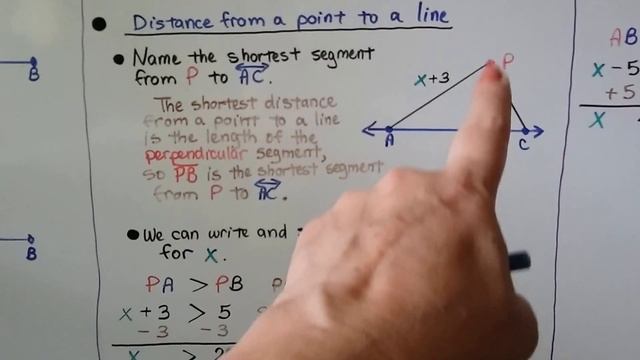 Distance from a point to a line
Name the shortest segment
from P to AC.
The shortest distance
from a point to a line
is the length of the
perpendicular segment,
so PB is the shortest segment
from P to AC.
x+3
P
A
C
We can write and
for x.
PA > PB
x + 3 > 5
- 3 - 3
x >
B
B
AB
x - 5
+ 5
x